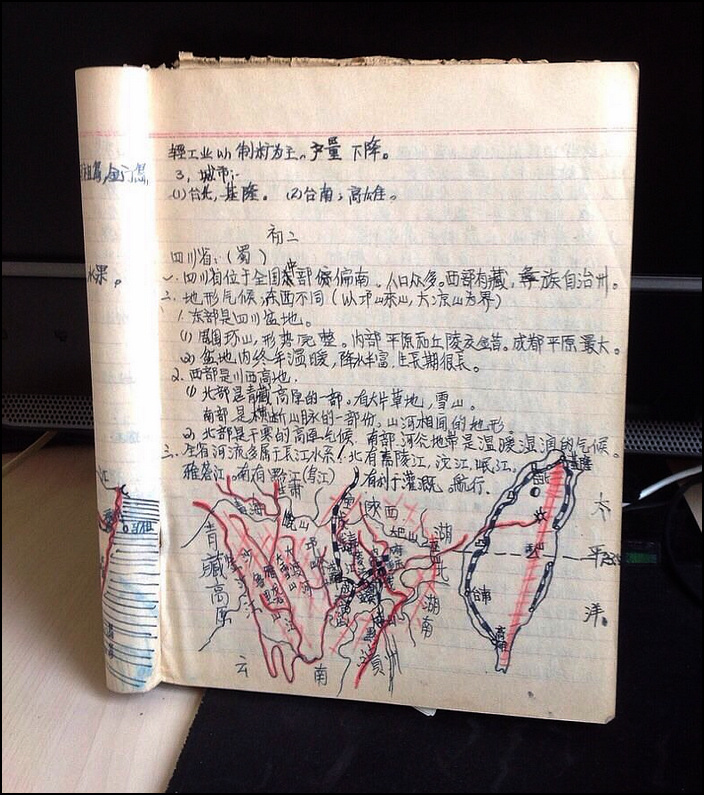 轻工业以制材为主，产量下降。
3、城市：
(1)台北，基隆。 (2)台南；高雄。
初二
四川省：（蜀）
一、四川省位于全国南部偏偏南，人口众多。西部有藏，彝族自治州。
二、地形气候，东西不同（以邛崃山，大凉山为界）
1.东部是四川盆地。
(1)周围环山，形势完整。内部平原和丘陵交错。成都平原最大。
(2)盆地内终年温暖，降水丰富，生长期很长。
2.西部是川西高地，
(1)北部是青藏高原的一部。有大片草地，雪山。
南部是横断山脉的一部份，山河相间的地形。
(2)北部是干寒的高原气候，南部河谷地带是温暖湿润的气候。
三、全省河流多属于长江水系！北有嘉陵江，沱江，岷江。
雅砻江。南有黔江(乌江) 有利于灌溉，航行。
水果。
甘肃
青海
陕西
湖北
湖南
青藏高原
云南
贵州
基隆
台北
台南
高雄
太平洋